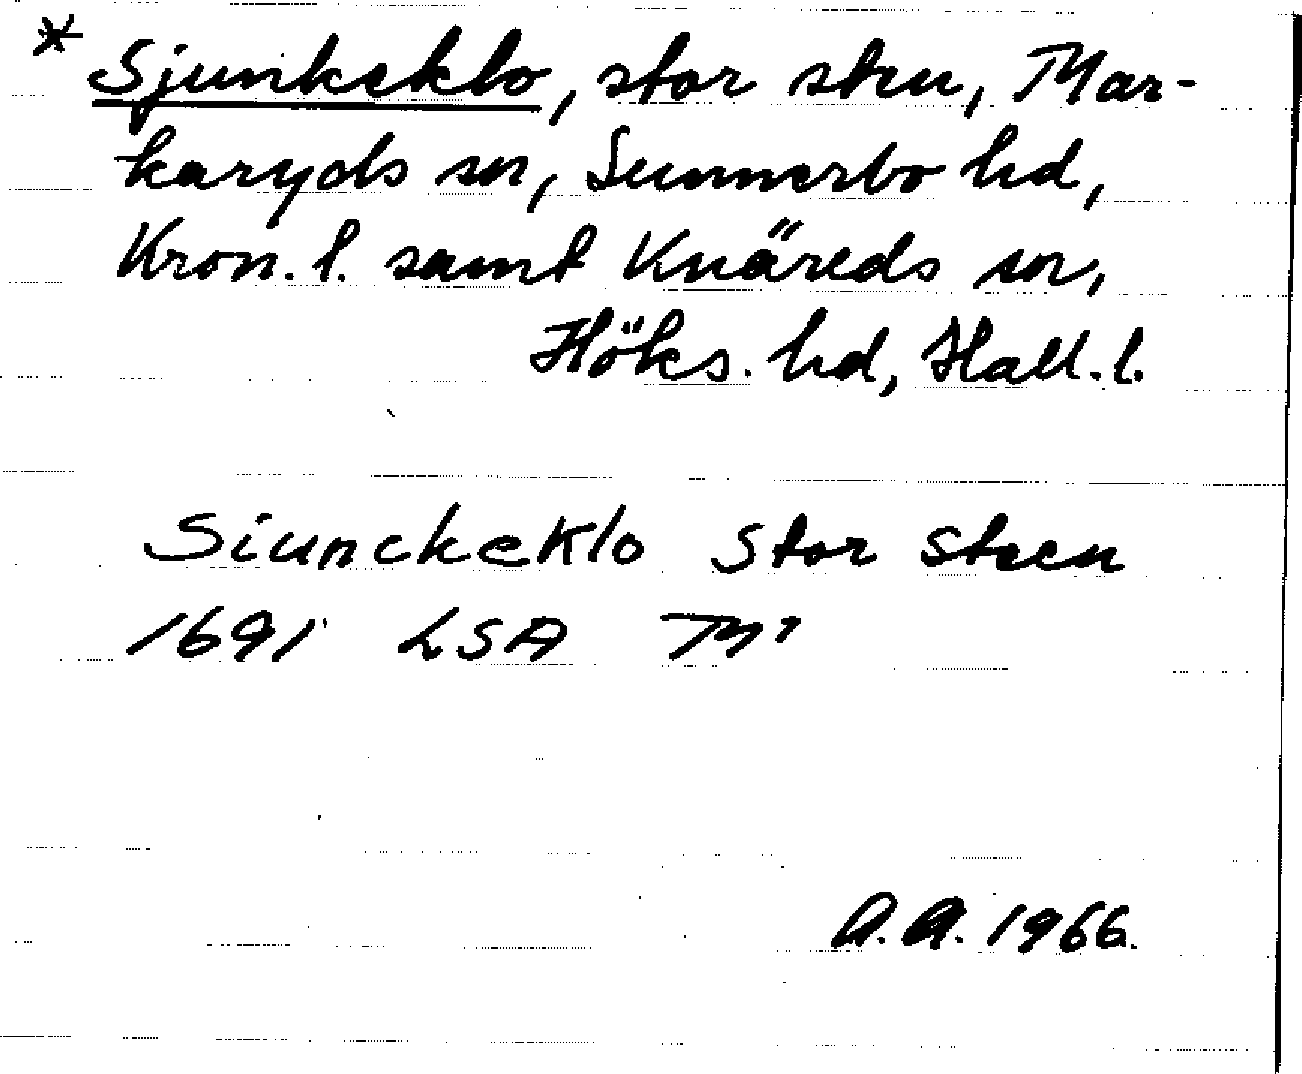 * Sjunkeklo, stor sten, Mar-
karyds sn, Sunnerbo hd,
Kron. l. samt Knäreds sn,
Höks. hd, Hall. l.
Siunckeklo stor steen
1691 LSA M¹
A.A. 1966.